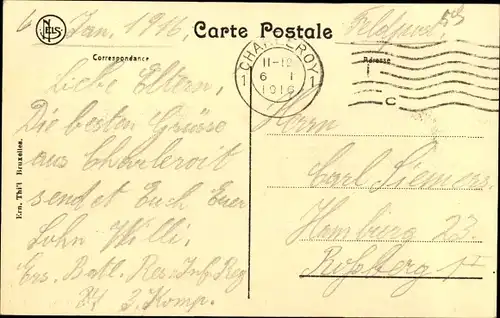 6 Jan. 1916.
NELS
Carte Postale
Feldpost.
Correspondance
Adresse
CHARLEROY
1 11-12 1
6 I
1916
C
Liebe Eltern,
Die besten Grüsse
aus Charleroi
sendet Euch Euer
Sohn Willi.
Ers. Batl. Res. Inf. Reg
3. Komp.
Herrn
Carl Siemers.
Hamburg 23.
Ern. Thill Bruxelles.